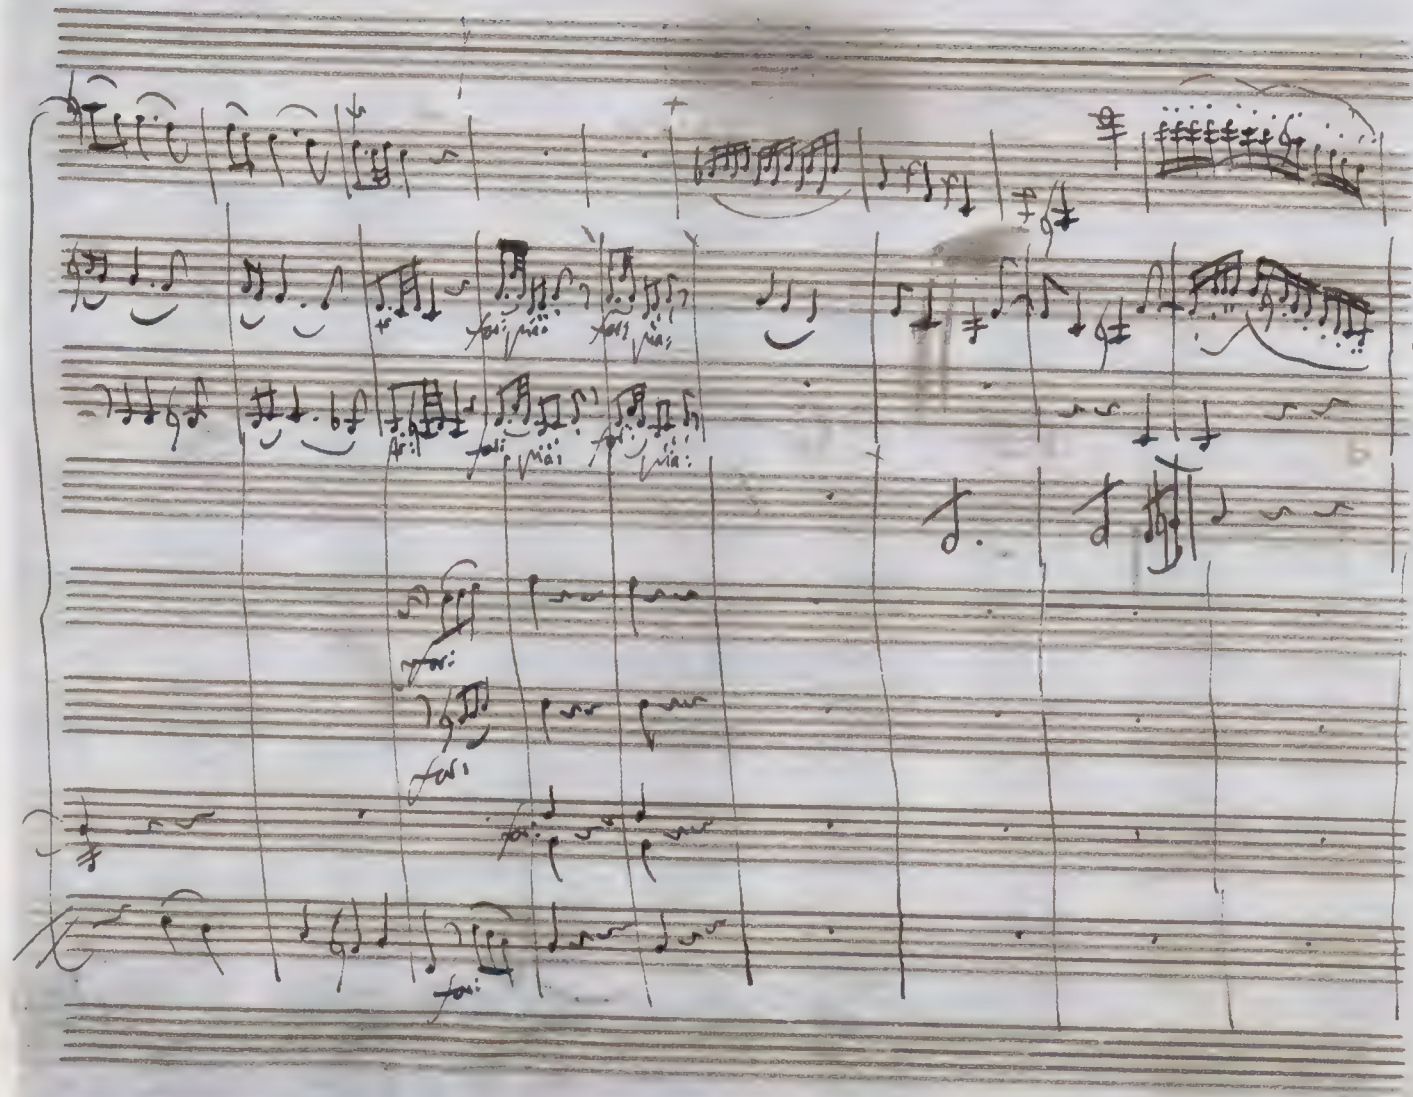 for: pia: for: pia:
for: for: pia: for: pia:
for:
for:
for:
for: